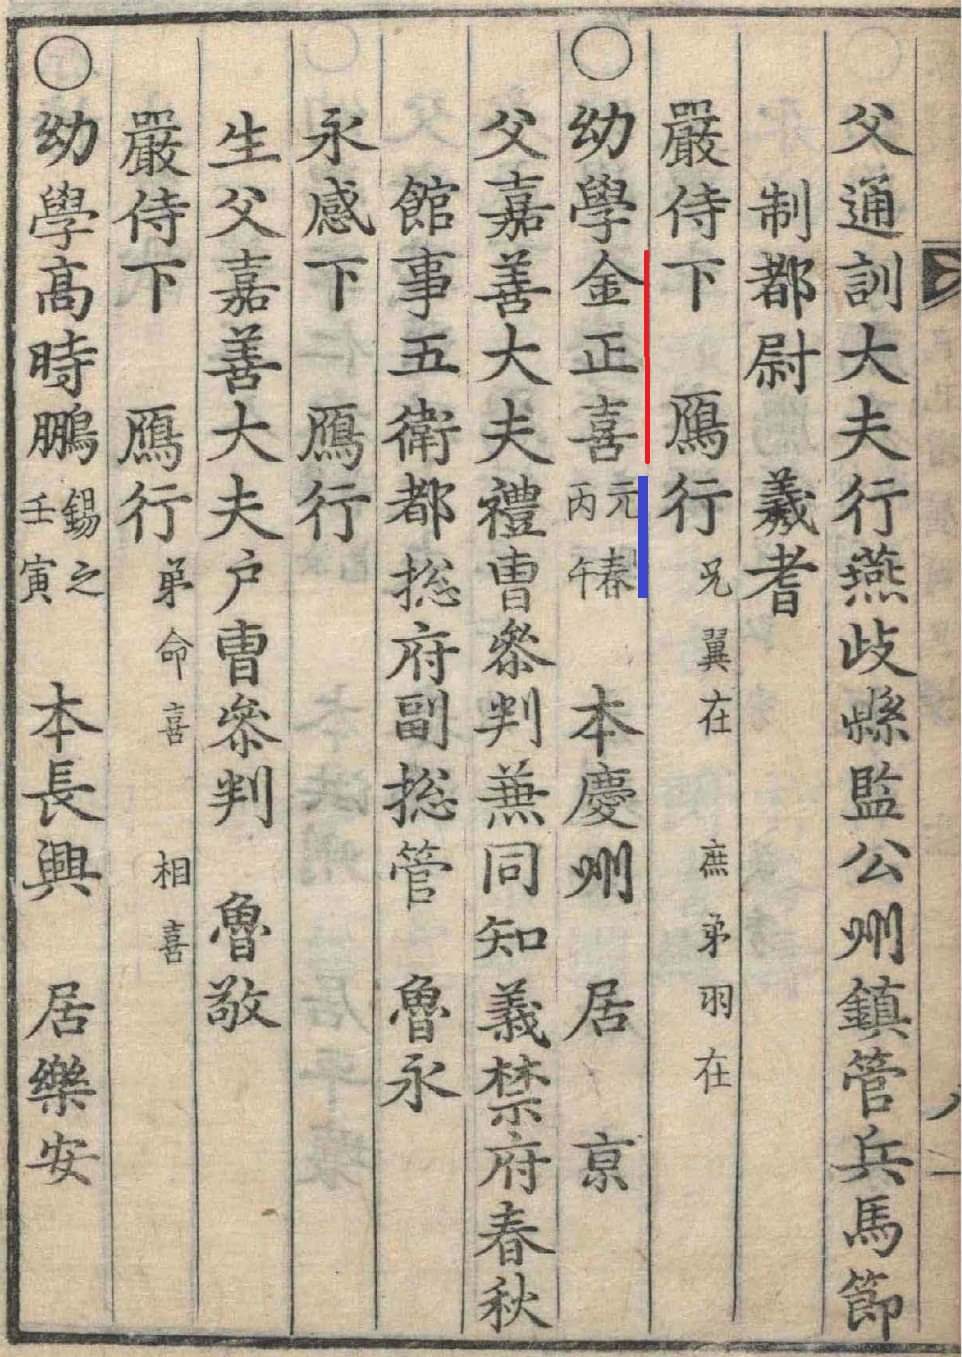 父通訓大夫行燕歧縣監公州鎮管兵馬節
制都尉 羲耆
嚴侍下 鴈行 兄翼在 庶弟羽在
○幼學金正喜 元春丙午 本慶州 居 京
父嘉善大夫禮曺叅判兼同知義禁府春秋
館事五衛都捴府副捴管 魯永
永感下 鴈行
生父嘉善大夫户曺叅判 魯敬
嚴侍下 鴈行 弟命喜 相喜
○幼學高時鵬 錫之壬寅 本長興 居樂安